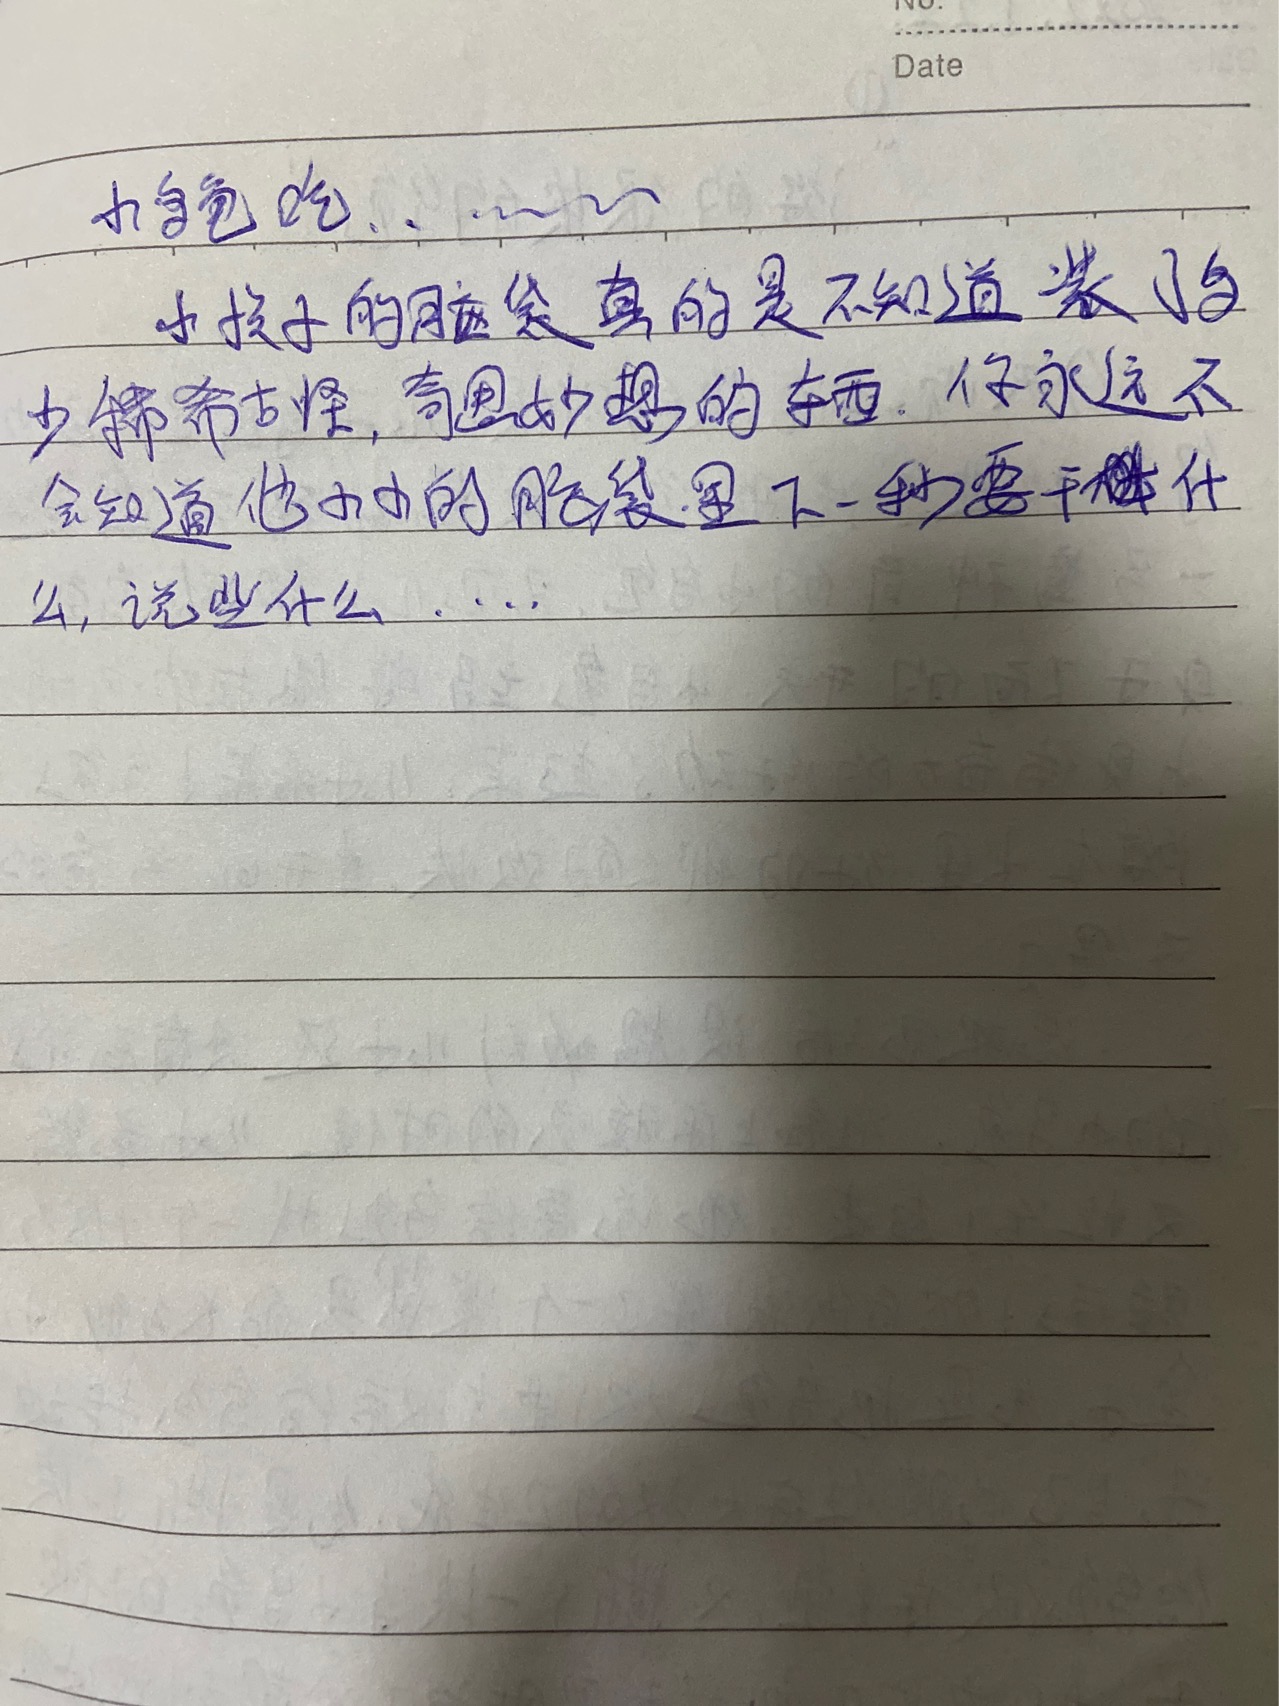 No.
Date
小鱼吃……
小孩子的脑袋真的是不知道装了多
少稀希古怪,奇思妙想的东西.你永远不
会知道他小小的脑袋里下一秒要干什
么,说些什么.....